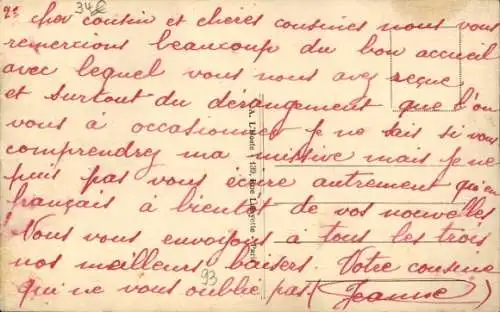 cher cousin et chères cousines nous vous
remercions beaucoup du bon accueil
avec lequel vous nous avez reçue
et surtout du dérangement que l'on
vous à occasionner je ne sais si vous
comprendrez ma missive mais je ne
puis pas vous écrire autrement qu'en
français à bientôt de vos nouvelles
Nous vous envoyons à tous les trois
nos meilleurs baisers. Votre cousine
qui ne vous oublie pas (Jeanne)
93